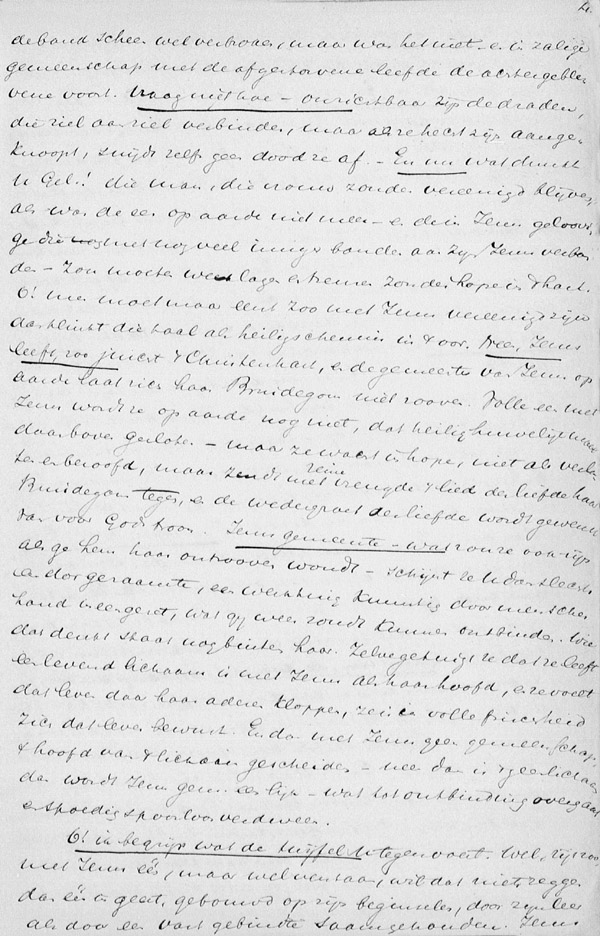 4.
de band scheen wel verbroken, maar was het niet – en in zalige
gemeenschap met de afgestorvene leefde de achtergeble-
vene voort. Vraag niet hoe – onzichtbaar zijn de draden,
die ziel aan ziel verbinden, maar als ze hecht zijn aange-
knoopt, snijdt zelfs geen dood ze af. – En nu wat dunkt
U Gel.! die man, die vrouw zouden vereenigd blijven,
als was de een op aarde niet meer – en de in Jezus geloovi-
ge die met nog veel inniger banden aan zijn Jezus verbon-
den – zou moeten en treuren zonder hope in 't hart.
O! men moet maar eens zoo met Jezus vereenigd zijn
dan klinkt die taal als heiligschennis in 't oor. Neen, Jezus
leeft, zoo juicht 't Christenhart, en de gemeente van Jezus op
aarde laat zich haar Bruidegom niet rooven. Volle een met
Jezus wordt ze op aarde nog niet, dat heilig huwelijk wordt
daarboven gesloten – maar ze wacht in hope, niet als verla-
ten en beroofd, maar zendt met reine vreugde 't lied der liefde haar
Bruidegom tegen, en de wedergroet der liefde wordt gewenscht
van voor Gods troon. Jezus gemeente – wat zou ze ook zijn
als ge hem haar ontrooven wondt – schijnt ze U dan slechts
een dor geraamte, een werktuig kunstig door menschen-
hand ineengezet, wat gij weer zoudt kunnen ontbinden. Wie
dat denkt staat nog buiten haar. Zelve getuigt ze dat ze leeft
een levend lichaam is met Jezus als haar hoofd, en ze voelt
dat leven door haar aderen kloppen, ze is in volle frischheid
zich dat leven bewust. En dan met Jezus geen gemeenschap,
't hoofd van 't lichaam gescheiden – nee dan is 't geen lichaam
dan wordt Jezus gem. een lijk – wat tot ontbinding overgaat
en spoedig spoorloos verdween.
O! ik begrijp wat de twijfel hier tegen voert. Wel, zijt zoo
met Jezus één, maar wel verstaan, wil dat niets zeggen
dan één in geest, gebouwd op zijn beginselen, door zijn leer
als door een vast gebinte saamgehouden. Jezus